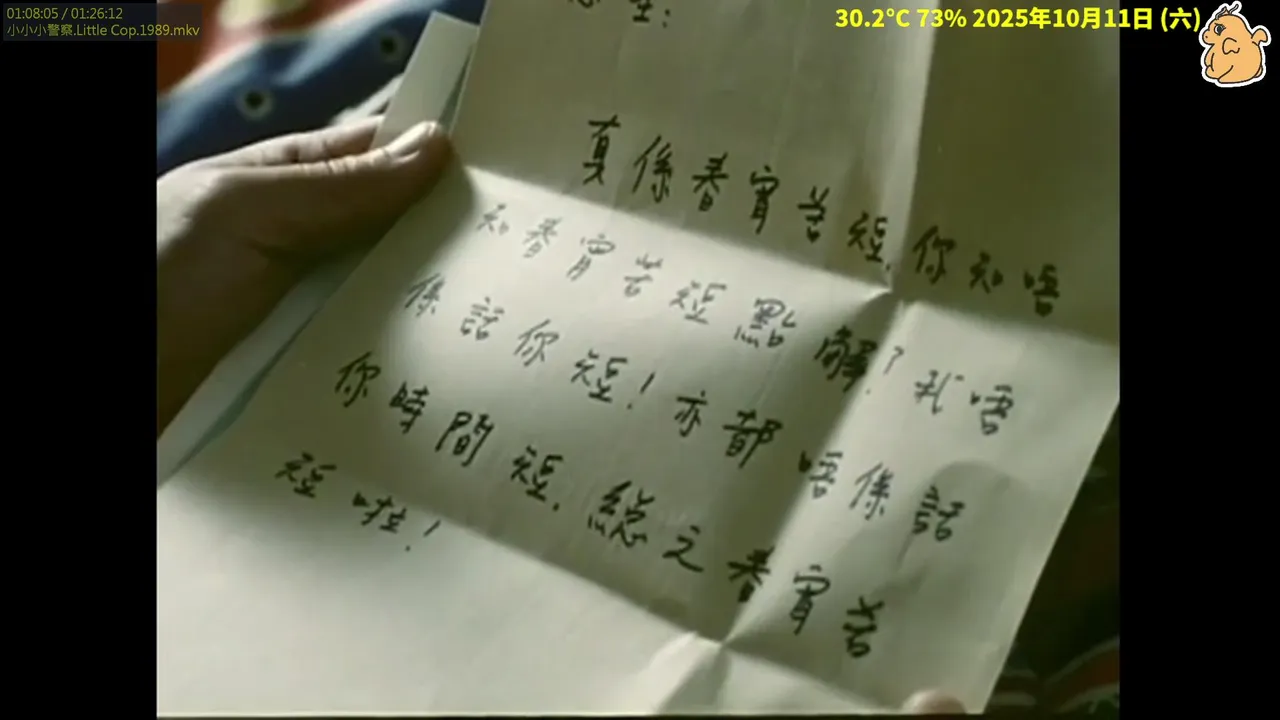 01:08:05 / 01:26:12
小小小警察.Little Cop.1989.mkv
30.2°C 73% 2025年10月11日 (六)
真係春宵苦短,你知唔
知春宵苦短點解?我唔
係話你短!亦都唔係話
你時間短,總之春宵苦
短啦!